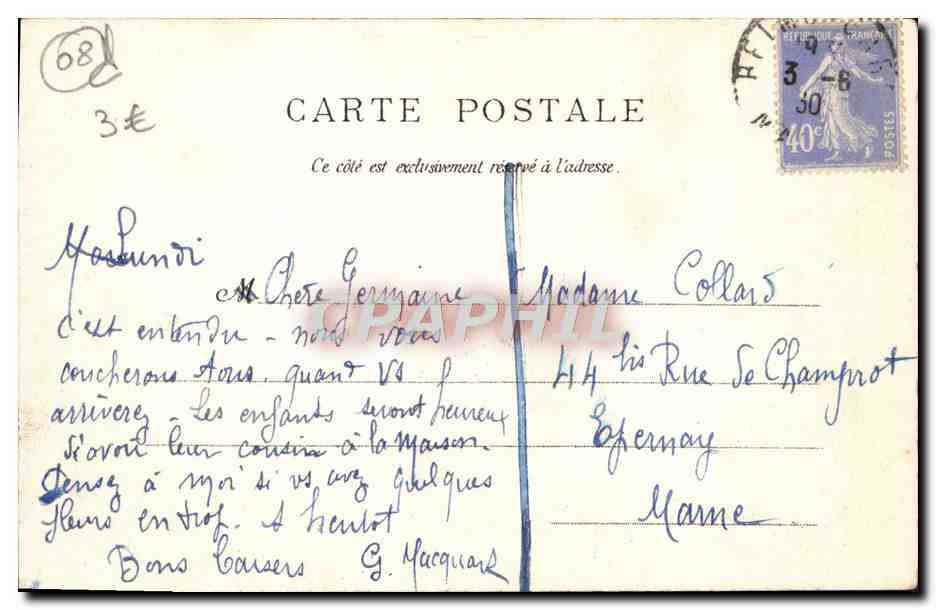 08
3€
CARTE POSTALE
Ce côté est exclusivement réservé à l'adresse.
REPUBLIQUE FRANÇAISE
3 -6
30
40c
POSTES
Lundi
Chère Germaine
c'est entendu - nous vous
coucherons tous. quand vs
arriverez - Les enfants seront heureux
d'avoir leur cousin à la maison.
Pensez à moi si vs avez quelques
fleurs en trop. A bientot
Bons baisers G. Macquart
Madame Collard
44 bis Rue de Champrot
Epernay
Marne
CPAPHIL